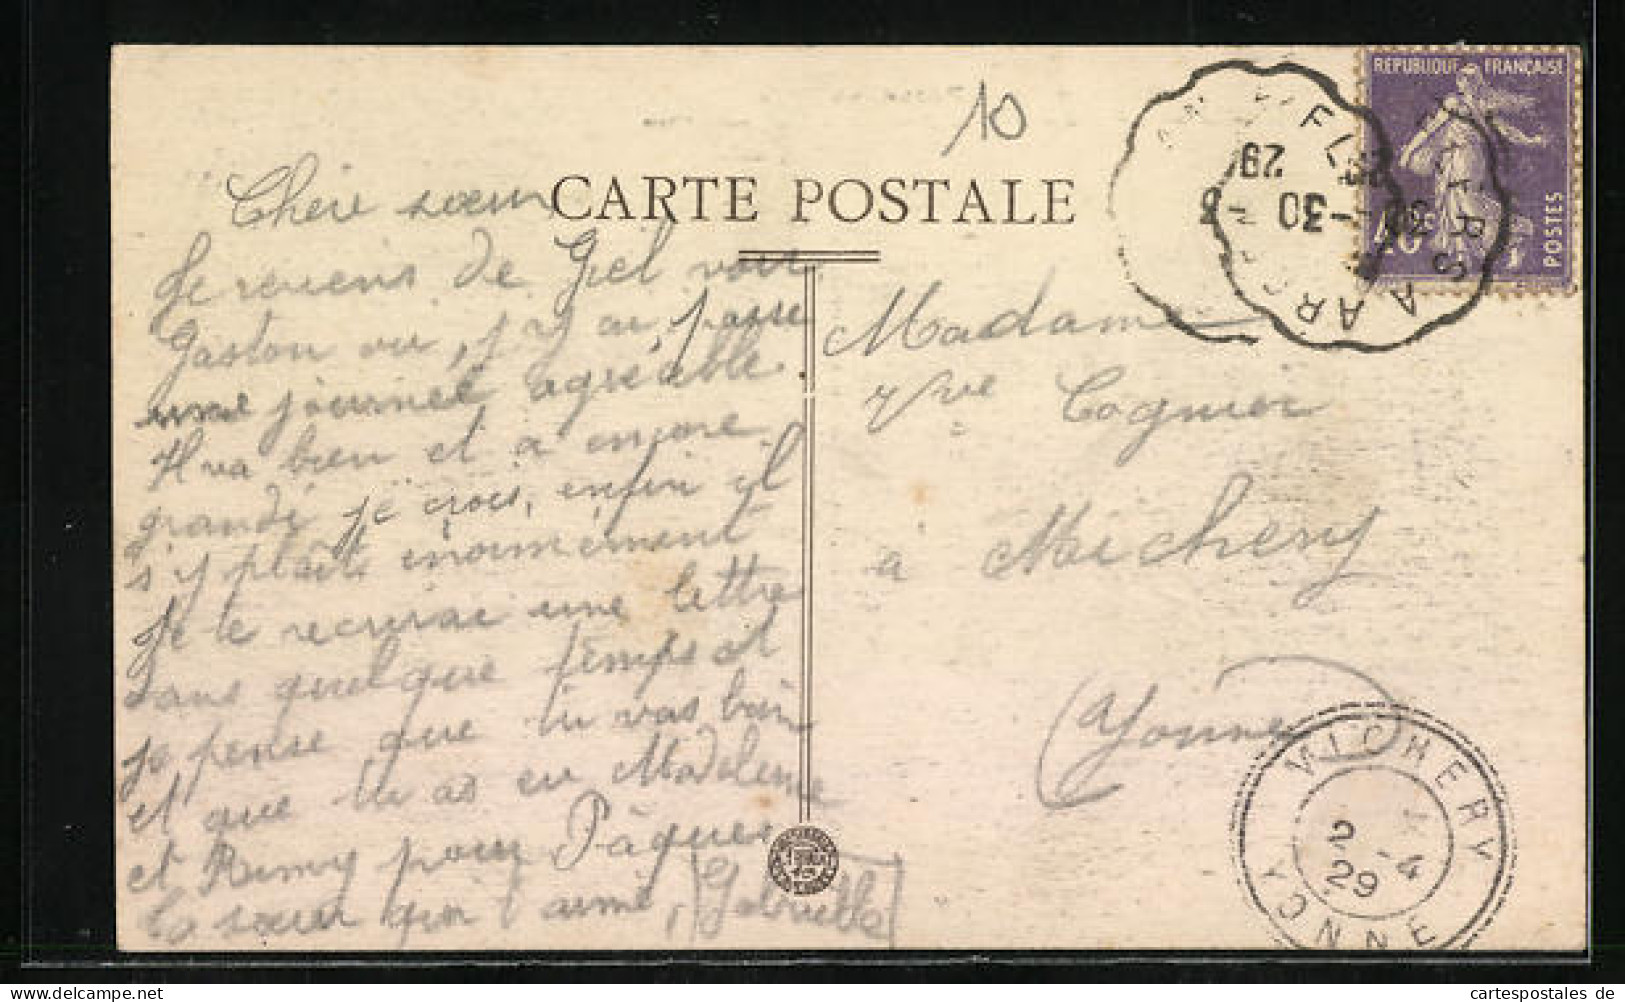 10
CARTE POSTALE
REPUBLIQUE FRANÇAISE
POSTES
40c
FL
ERS A AR
29
30-3
Chère sœur
Je reviens de Giel voir
Gaston où j'y ai passé
une journée agréable.
Il va bien et a encore
grandi je crois, enfin il
s'y plaît énormément
Je te recrirai une lettre
dans quelque temps et
je pense que tu vas bien
et que tu as eu Madeleine
et Rémy pour Pâques
Ta sœur qui t'aime, Gabrielle
Madame
Vve Cognier
à Michery
(Yonne)
MICHERY
2 -4
29
YONNE
cartespostales.de